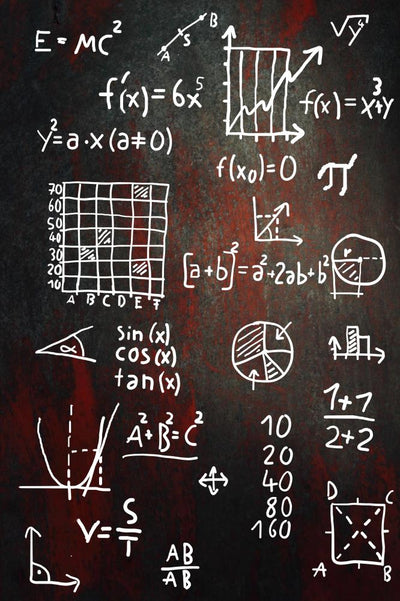 E = MC²
A S B
√y⁴
f'(x) = 6x⁵
f(x) = x³+y
y² = a·x (a≠0)
f(x₀) = 0
π
70
60
50
40
30
20
10
A B C D E F
[a+b]⁻² = a²+2ab+b²
r
α
sin (x)
cos (x)
tan (x)
1+1
2+2
A²+B²=C²
10
20
40
80
160
V = S/T
AB
AB
D C
A B